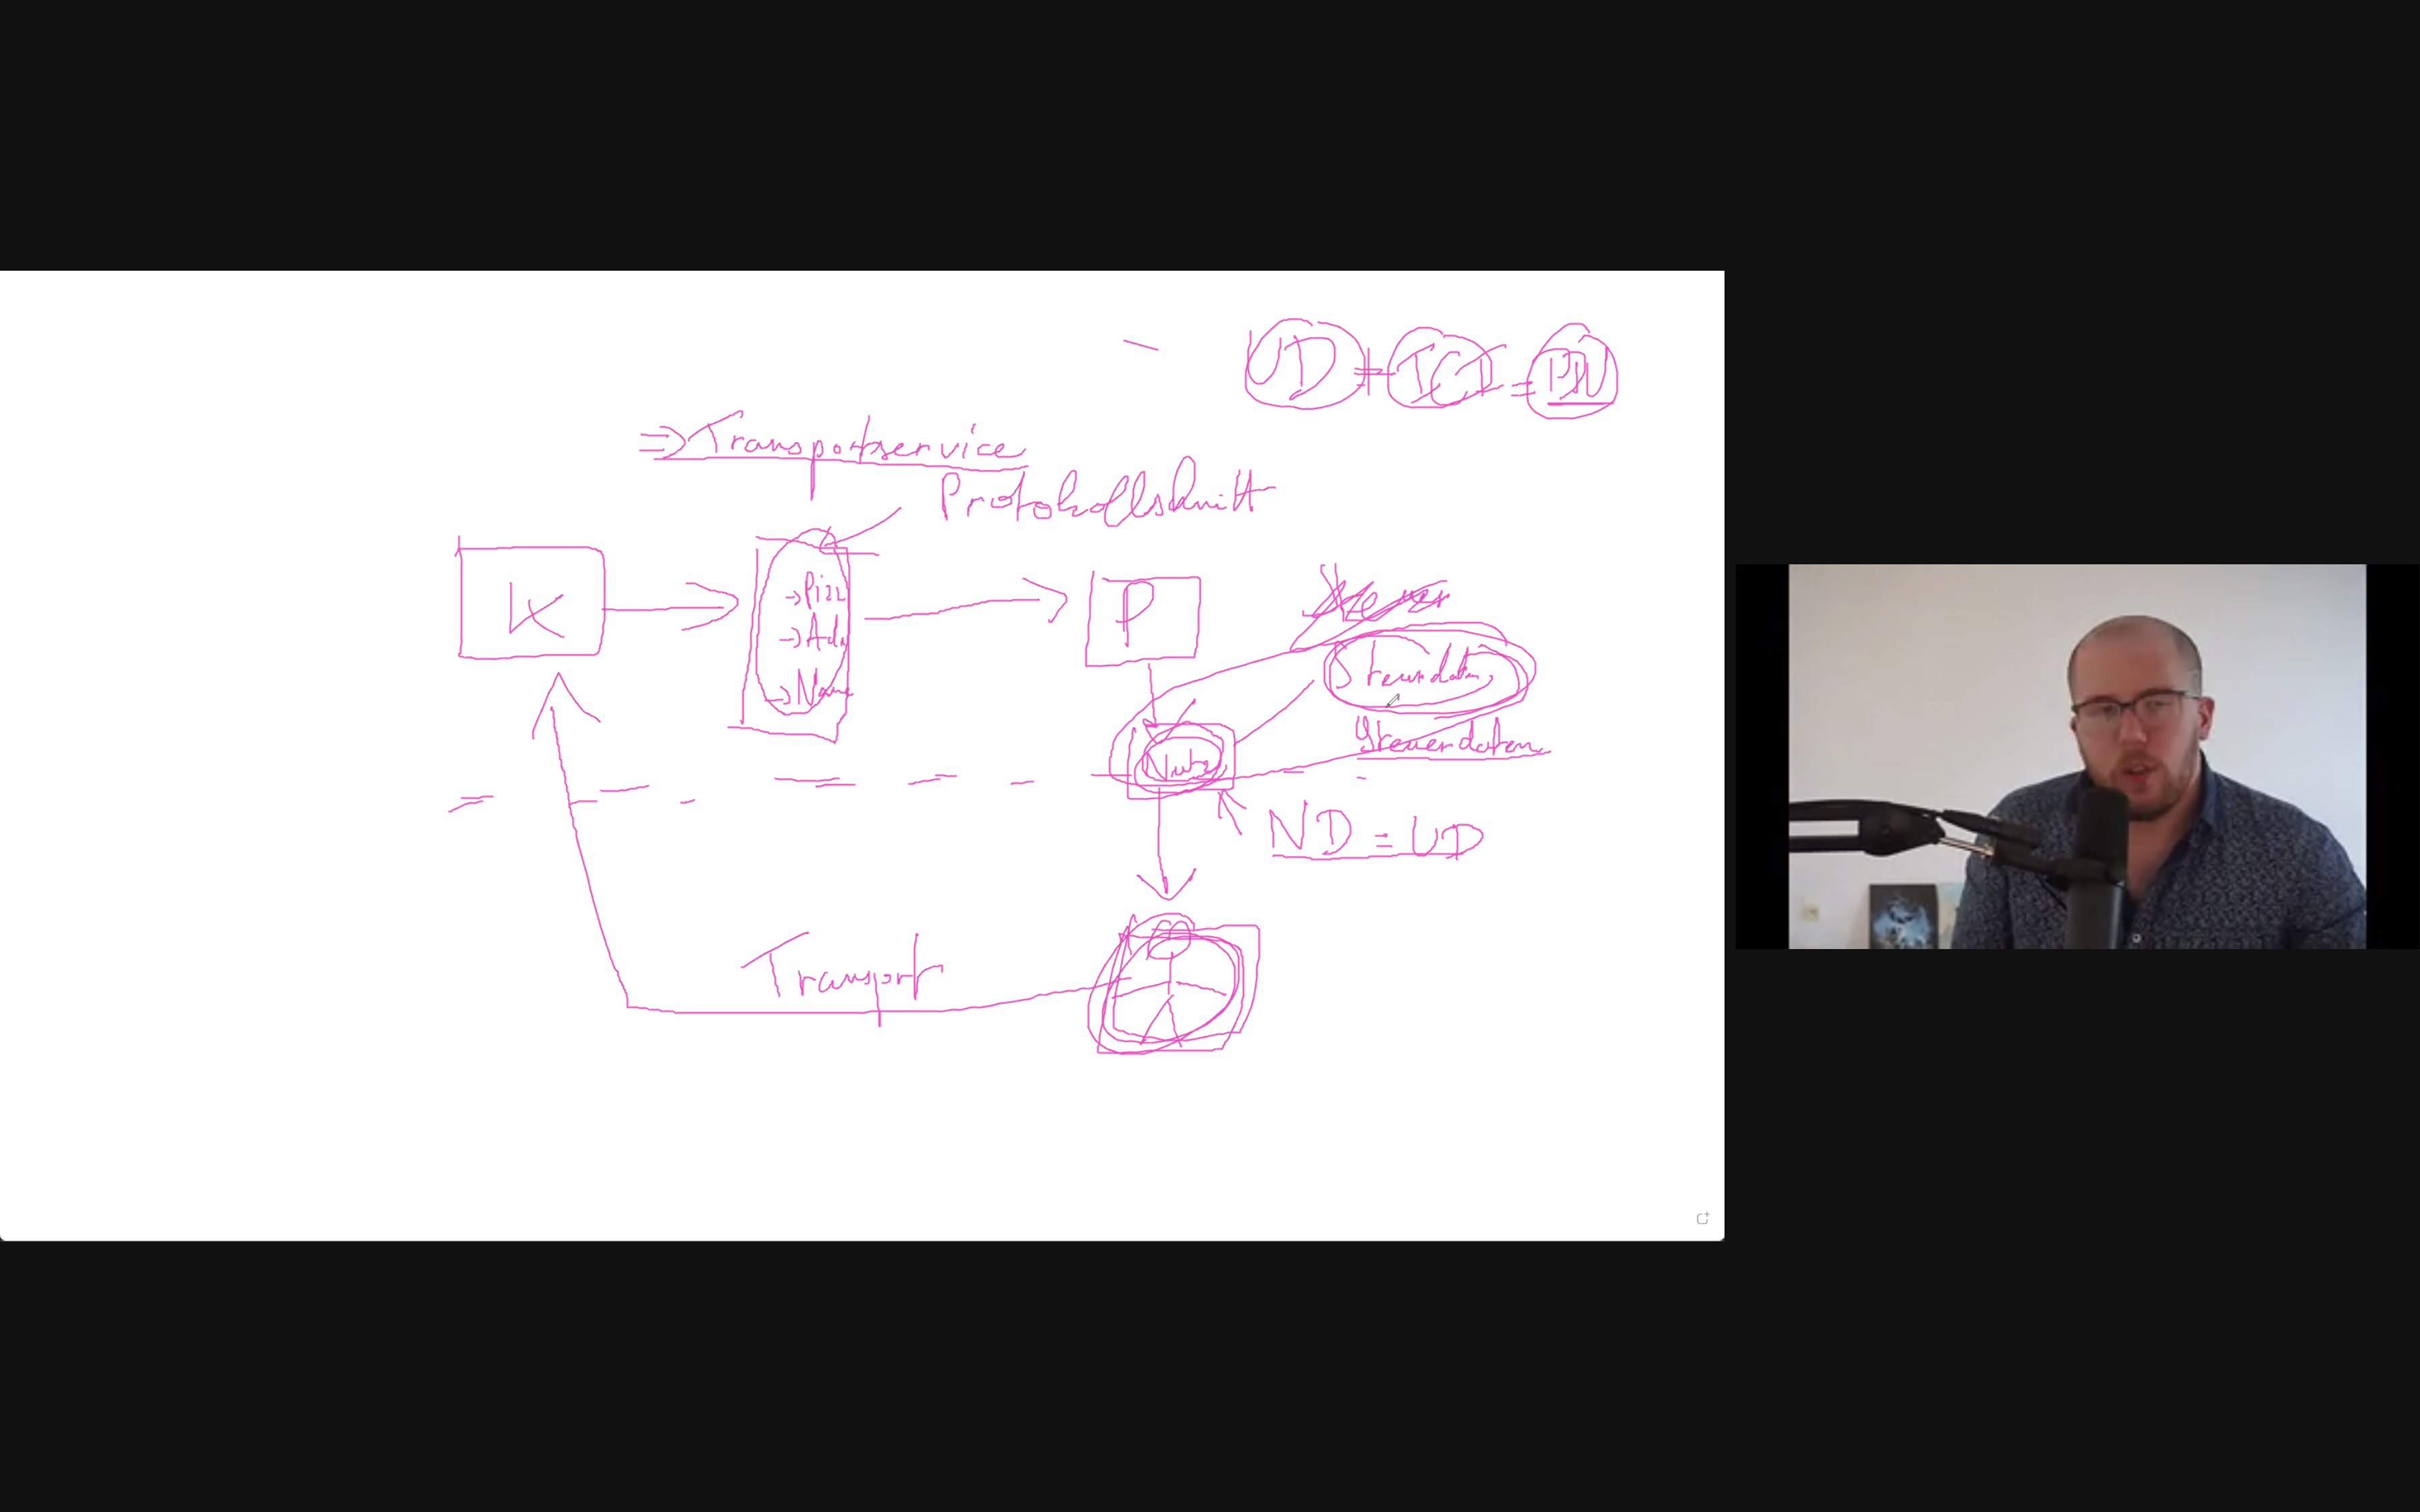 UD + ICI = PDU
⇒ Transportservice
Protokollschnitt
K
→ Pizz
→ Adr
→ Name
P
Steuerdaten
Steuerdaten
Nutz
ND = UD
Transport